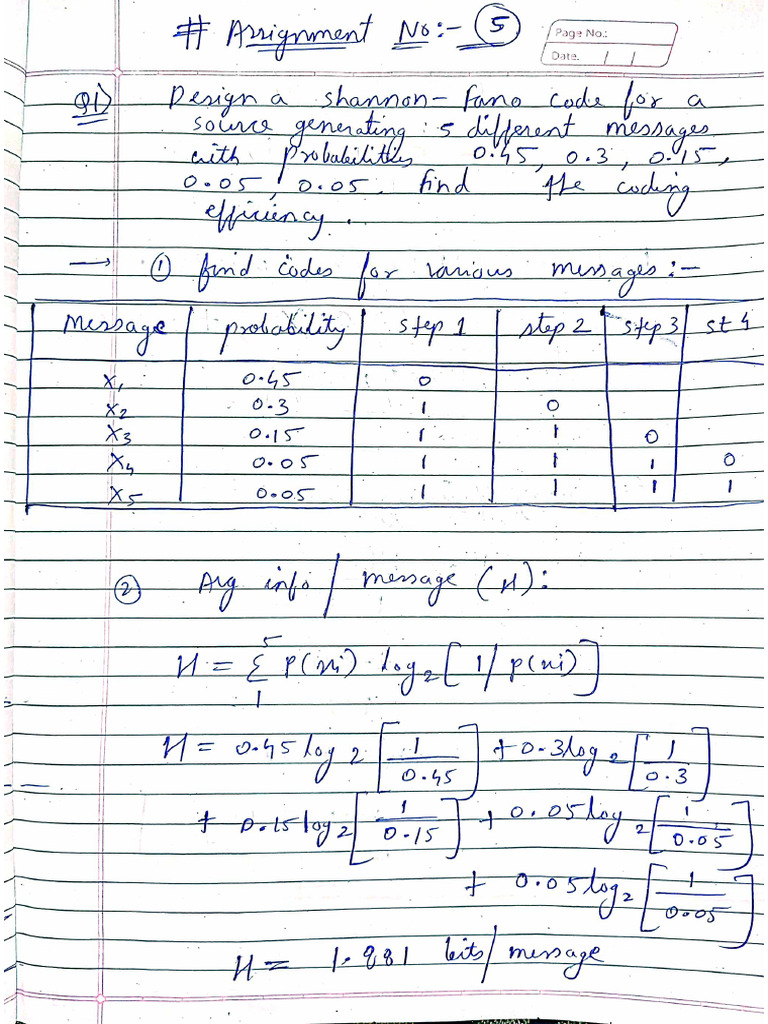 # Assignment No:- 5
Page No.:
Date. / /
Q1) Design a shannon-Fano code for a
source generating : 5 different messages
with probabilities 0.45, 0.3, 0.15,
0.05, 0.05. find the coding
efficiency.
→ ① find codes for various messages:-
Message probability step 1 step 2 step 3 st 4
X₁ 0.45 0
X₂ 0.3 1 0
X₃ 0.15 1 1 0
X₄ 0.05 1 1 1 0
X₅ 0.05 1 1 1 1
② Avg info / message (H):
H = Σ₁⁵ P(xi) · log₂ [1/p(xi)]
H = 0.45 log₂ [1/0.45] + 0.3 log₂ [1/0.3]
+ 0.15 log₂ [1/0.15] + 0.05 log₂ [1/0.05]
+ 0.05 log₂ [1/0.05]
H = 1.881 bits/message